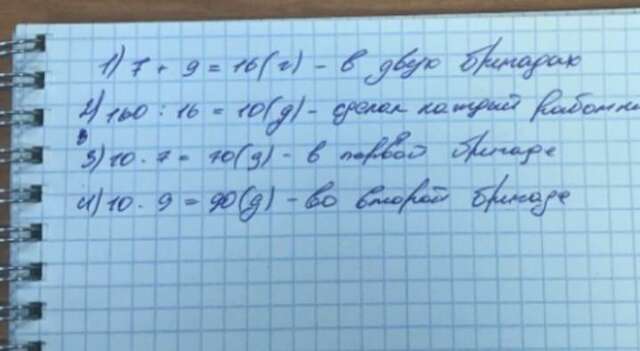 1) 7 + 9 = 16 (ч) - в двух бригадах
2) 160 : 16 = 10 (д) - сделал каждый работни
3) 10 · 7 = 70 (д) - в первой бригаде
4) 10 · 9 = 90 (д) - во второй бригаде